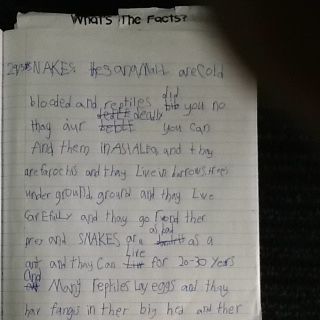 What's The Facts?
SNAKES: thes anamals are cold
blooded and reptiles did you no
thay aur deadly you can
And them in ASIALEQ and thay
are farochis and thay Live in burrows, trees
under ground, ground and thay Live
carefuly and thay go ther
prey and SNAKES are as bad as a
and thay can Live for 20-30 years
and Many reptiles Lay eggs and thay
hav fangs in ther big hed and ther